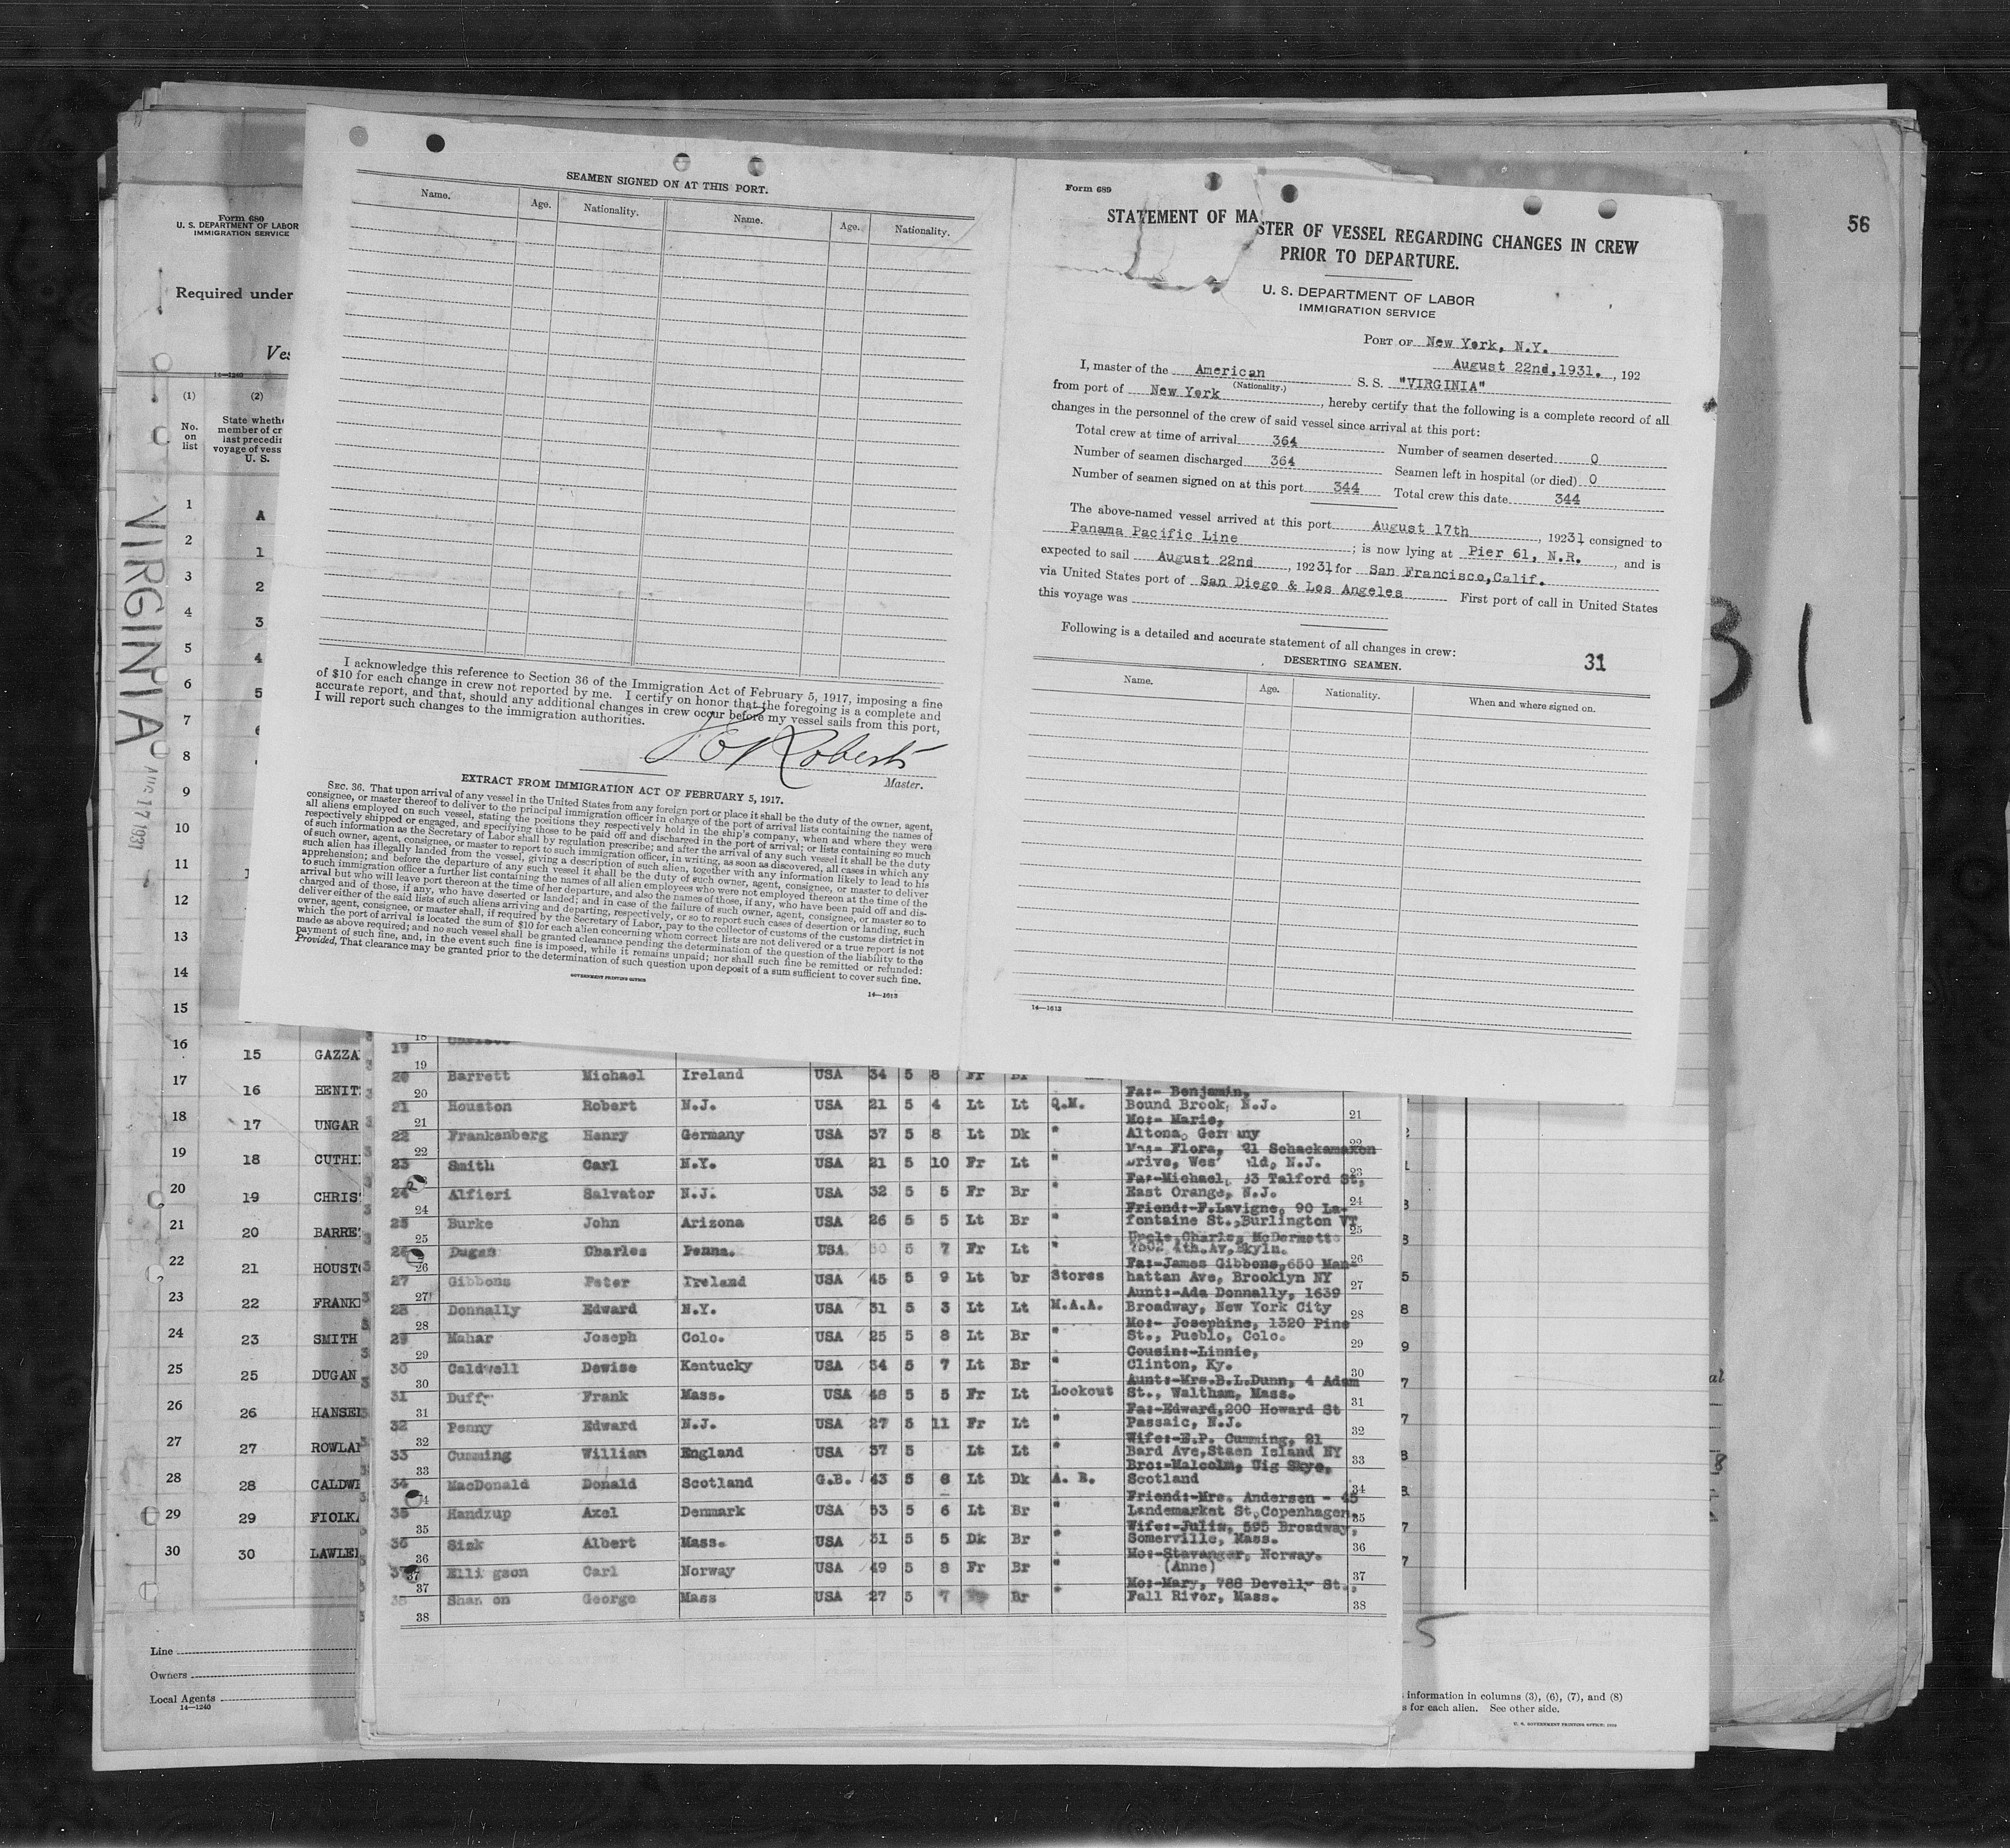 56
Form 680
U. S. DEPARTMENT OF LABOR
IMMIGRATION SERVICE
Required under
14—1240
(1)
(2)
No.
on
list
State wheth
member of cr
last precedin
voyage of vess
U. S.
VIRGINIA
AUG 17 1931
1
A
2
1
3
2
4
3
5
4
6
5
7
8
9
10
11
12
13
14
15
16
15 GAZZA
17
16 BENIT
18
17 UNGAR
19
18 CUTHI
20
19 CHRIS
21
20 BARRE
22
21 HOUST
23
22 FRANK
24
23 SMITH
25
25 DUGAN
26
26 HANSE
27
27 ROWLA
28
28 CALDW
29
29 FIOLK
30
30 LAWLE
Line
Owners
Local Agents
14—1240
SEAMEN SIGNED ON AT THIS PORT.
Name. Age. Nationality. Name. Age. Nationality.
I acknowledge this reference to Section 36 of the Immigration Act of February 5, 1917, imposing a fine
of $10 for each change in crew not reported by me. I certify on honor that the foregoing is a complete and
accurate report, and that, should any additional changes in crew occur before my vessel sails from this port,
I will report such changes to the immigration authorities.
Roberts
Master.
EXTRACT FROM IMMIGRATION ACT OF FEBRUARY 5, 1917.
SEC. 36. That upon arrival of any vessel in the United States from any foreign port or place it shall be the duty of the owner, agent,
consignee, or master thereof to deliver to the principal immigration officer in charge of the port of arrival lists containing the names of
all aliens employed on such vessel, stating the positions they respectively hold in the ship's company, when and where they were
respectively shipped or engaged, and specifying those to be paid off and discharged in the port of arrival; or lists containing so much
of such information as the Secretary of Labor shall by regulation prescribe; and after the arrival of any such vessel it shall be the duty
of such owner, agent, consignee, or master to report to such immigration officer, in writing, as soon as discovered, all cases in which any
such alien has illegally landed from the vessel, giving a description of such alien, together with any information likely to lead to his
apprehension; and before the departure of any such vessel it shall be the duty of such owner, agent, consignee, or master to deliver
to such immigration officer a further list containing the names of all alien employees who were not employed thereon at the time of the
arrival but who will leave port thereon at the time of her departure, and also the names of those, if any, who have been paid off and dis-
charged and of those, if any, who have deserted or landed; and in case of the failure of such owner, agent, consignee, or master so to
deliver either of the said lists of such aliens arriving and departing, respectively, or so to report such cases of desertion or landing, such
owner, agent, consignee, or master shall, if required by the Secretary of Labor, pay to the collector of customs of the customs district in
which the port of arrival is located the sum of $10 for each alien concerning whom correct lists are not delivered or a true report is not
made as above required; and no such vessel shall be granted clearance pending the determination of the question of the liability to the
payment of such fine, and, in the event such fine is imposed, while it remains unpaid; nor shall such fine be remitted or refunded:
Provided, That clearance may be granted prior to the determination of such question upon deposit of a sum sufficient to cover such fine.
GOVERNMENT PRINTING OFFICE
14—1612
Form 689
STATEMENT OF MASTER OF VESSEL REGARDING CHANGES IN CREW
PRIOR TO DEPARTURE.
U. S. DEPARTMENT OF LABOR
IMMIGRATION SERVICE
PORT OF New York, N.Y.
August 22nd,1931. , 192
I, master of the American S. S. "VIRGINIA"
(Nationality.)
from port of New York, hereby certify that the following is a complete record of all
changes in the personnel of the crew of said vessel since arrival at this port:
Total crew at time of arrival 364 Number of seamen deserted 0
Number of seamen discharged 364 Seamen left in hospital (or died) 0
Number of seamen signed on at this port 344 Total crew this date 344
The above-named vessel arrived at this port August 17th, 19231 consigned to
Panama Pacific Line; is now lying at Pier 61, N.R., and is
expected to sail August 22nd, 19231 for San Francisco,Calif.
via United States port of San Diego & Los Angeles First port of call in United States
this voyage was
Following is a detailed and accurate statement of all changes in crew:
31
DESERTING SEAMEN.
Name. Age. Nationality. When and where signed on.
14—1612
31
19
20 Barrett Michael Ireland USA 34 5 8 Fr Br
Fa:- Benjamin,
21 Houston Robert N.J. USA 21 5 4 Lt Lt Q.M. Bound Brook, N.J. 21
Mo:- Marie,
22 Frankenberg Henry Germany USA 37 5 8 Lt Dk " Altona, Germany 22
Flora, 21 Schackamaxon
23 Smith Carl N.Y. USA 21 5 10 Fr Lt " Drive, Wes ld, N.J. 23
Fa:-Michael, 33 Talford St,
24 Alfieri Salvator N.J. USA 32 5 5 Fr Br " East Orange, N.J. 24
Friend:-F.Lavigne, 90 La-
25 Burke John Arizona USA 26 5 5 Lt Br " fontaine St.,Burlington VT 25
Uncle,Charles McDermott
26 Dugan Charles Penna. USA 30 5 7 Fr Lt " 7502 4th.Av,Bkyln. 26
Fa:-James Gibbons,650 Man-
27 Gibbons Peter Ireland USA 45 5 9 Lt br Stores hattan Ave, Brooklyn NY 27
Aunt:-Ada Donnally, 1639
28 Donnally Edward N.Y. USA 31 5 3 Lt Lt M.A.A. Broadway, New York City 28
Mo:- Josephine, 1320 Pine
29 Mahar Joseph Colo. USA 25 5 8 Lt Br " St., Pueblo, Colo. 29
Cousin:-Linnie,
30 Caldwell Dewise Kentucky USA 34 5 7 Lt Br " Clinton, Ky. 30
Aunt:-Mrs.B.L.Dunn, 4 Adam
31 Duffy Frank Mass. USA 48 5 5 Fr Lt Lookout St., Waltham, Mass. 31
Fa:-Edward,200 Howard St
32 Penny Edward N.J. USA 27 5 11 Fr Lt " Passaic, N.J. 32
Wife:-E.P. Cumming, 21
33 Cumming William England USA 37 5 Lt Lt " Bard Ave,Staen Island NY 33
Bro:-Malcolm, Uig Skye,
34 MacDonald Donald Scotland G.B. 43 5 8 Lt Dk A. B. Scotland 34
Friend:-Mrs. Andersen - 45
35 Handzup Axel Denmark USA 53 5 6 Lt Br " Landemarket St,Copenhagen. 35
Wife:-Julia, 595 Broadway,
36 Sisk Albert Mass. USA 31 5 5 Dk Br " Somerville, Mass. 36
Mo:-Stavanger, Norway.
37 Elli gson Carl Norway USA 49 5 8 Fr Br " (Anne) 37
Mo:-Mary, 788 Develly St.,
38 Shan on George Mass USA 27 5 7 Br " Fall River, Mass. 38
information in columns (3), (6), (7), and (8)
s for each alien. See other side.
U. S. GOVERNMENT PRINTING OFFICE